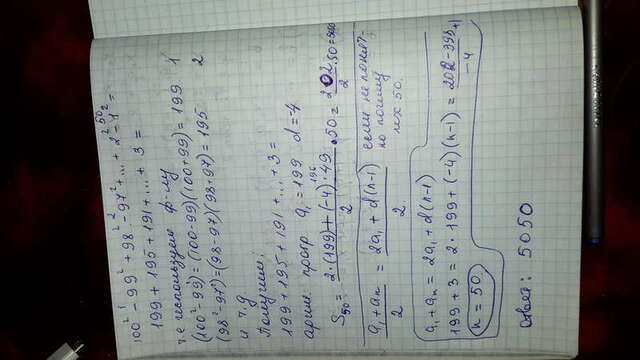 100² - 99² + 98² - 97² + ... + 2² - 1² =
199 + 195 + 191 + ... + 3 =
т.е используем ф-лу
(100² - 99²) = (100-99)(100+99) = 199 1
(98² - 97²) = (98-97)(98+97) = 195 2
и т.д
Получим:
199 + 195 + 191 + ... + 3 =
арифм. прогр. a₁ = 199 d = -4
S₅₀ = 2·(199) + (-4)·49 / 2 · 50 = 202·50 / 2 = 5050
a₁ + aₙ / 2 = 2a₁ + d(n-1) / 2 если не понят-
но почему
их 50.
a₁ + aₙ = 2a₁ + d(n-1)
199 + 3 = 2·199 + (-4)(n-1) = 202 - 398 / -4 + 1
n = 50
Ответ: 5050